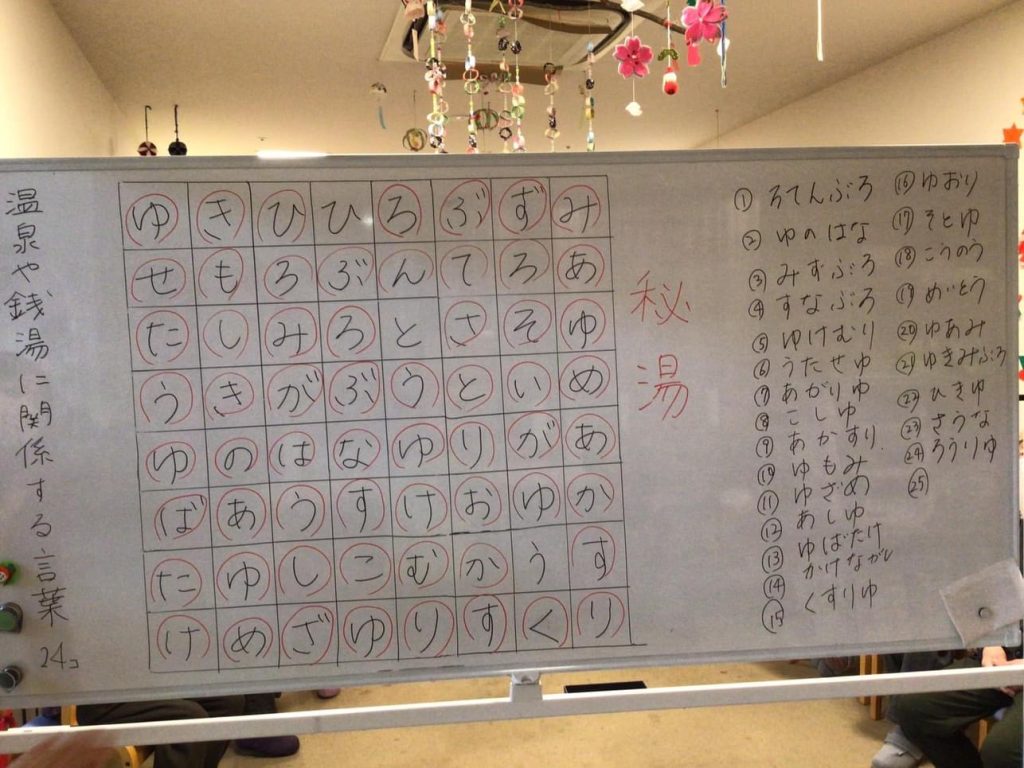 温泉や銭湯に関係する言葉 24コ
ゆきひひろぶずみ
せもろぶんてろあ
たしみろとさそゆ
うきがぶうといめ
ゆのはなゆりがあ
ばあうすけおゆか
たゆしこむかうす
けめざゆりすくり
秘湯
① ろてんぶろ
② ゆのはな
③ みずぶろ
④ すなぶろ
⑤ ゆけむり
⑥ うたせゆ
⑦ あがりゆ
⑧ こしゆ
⑨ あかすり
⑩ ゆもみ
⑪ ゆざめ
⑫ あしゆ
⑬ ゆばたけ
⑭ かけながし
⑮ くすりゆ
⑯ ゆおり
⑰ そとゆ
⑱ こうのう
⑲ めいとう
⑳ ゆあみ
㉑ ゆきみぶろ
㉒ ひきゆ
㉓ さうな
㉔ ろうりゆ
㉕